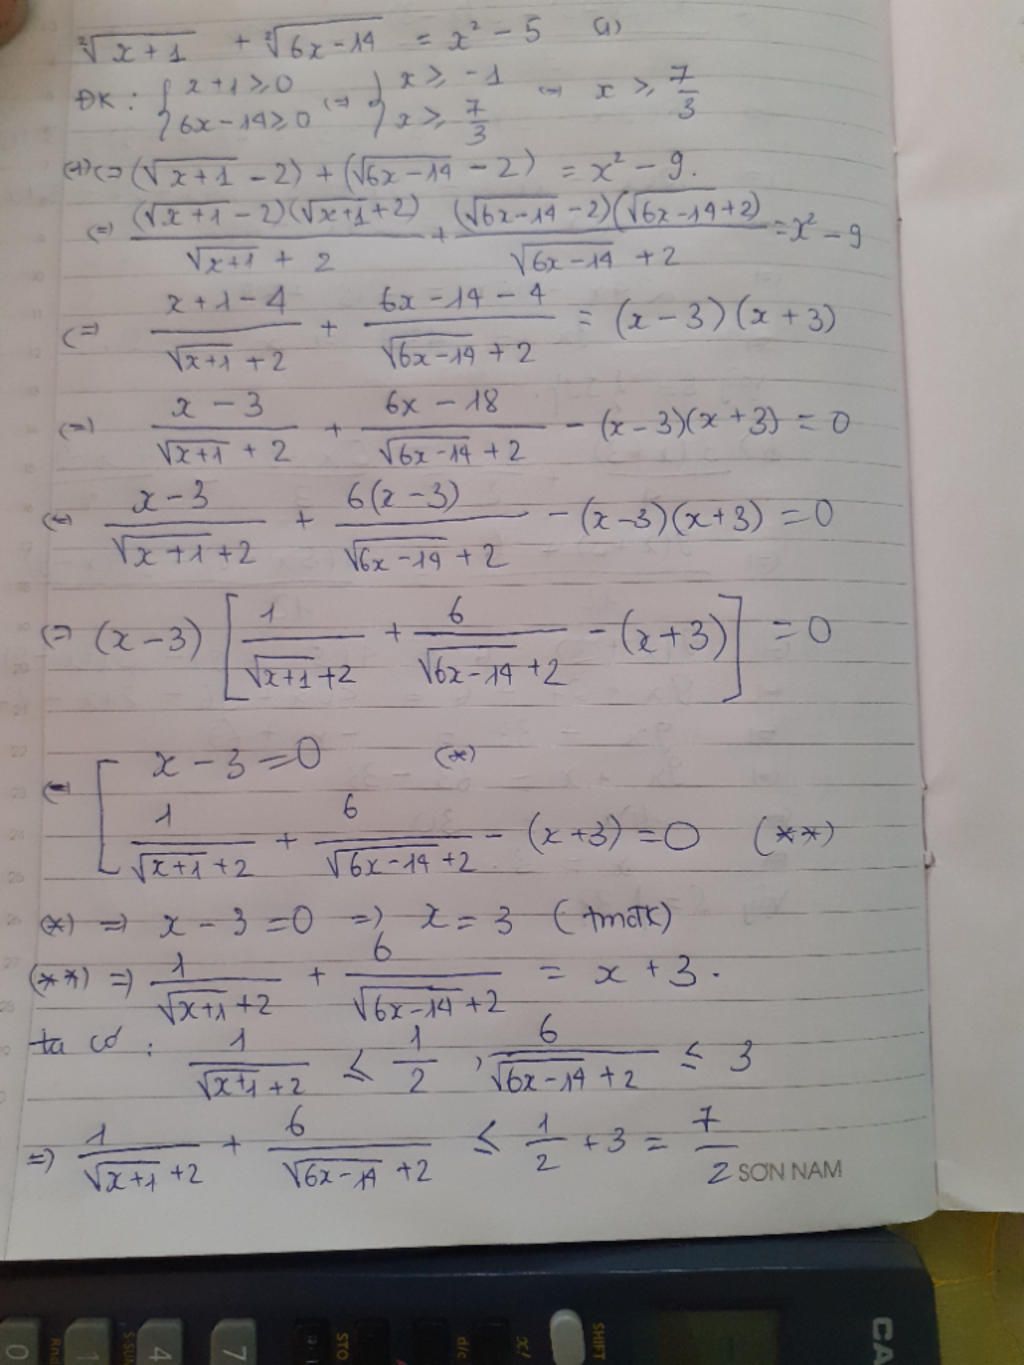 ²√x+1 + ²√6x-14 = x² - 5 (1)
ĐK: { x+1 ≥ 0 (=) { x ≥ -1 (=) x ≥ 7/3
{ 6x-14 ≥ 0 { x ≥ 7/3
(1) (=) (√x+1 - 2) + (√6x-14 - 2) = x² - 9.
(=) (√x+1 - 2)(√x+1 + 2) / √x+1 + 2 + (√6x-14 - 2)(√6x-14 + 2) / √6x-14 + 2 = x² - 9
(=) x+1-4 / √x+1 + 2 + 6x-14-4 / √6x-14 + 2 = (x-3)(x+3)
(=) x-3 / √x+1 + 2 + 6x-18 / √6x-14 + 2 - (x-3)(x+3) = 0
(=) x-3 / √x+1 + 2 + 6(x-3) / √6x-14 + 2 - (x-3)(x+3) = 0
(=) (x-3) [ 1 / √x+1 + 2 + 6 / √6x-14 + 2 - (x+3) ] = 0
(=) [ x-3 = 0 (*)
1 / √x+1 + 2 + 6 / √6x-14 + 2 - (x+3) = 0 (**)
(*) => x-3 = 0 => x = 3 (tmđk)
(**) => 1 / √x+1 + 2 + 6 / √6x-14 + 2 = x+3.
ta có: 1 / √x+1 + 2 ≤ 1/2 , 6 / √6x-14 + 2 ≤ 3
=> 1 / √x+1 + 2 + 6 / √6x-14 + 2 ≤ 1/2 + 3 = 7/2
SƠN NAM
CA
SHIFT
x!
d/c
STO
7
4
S-SUM
1
Rnd
0